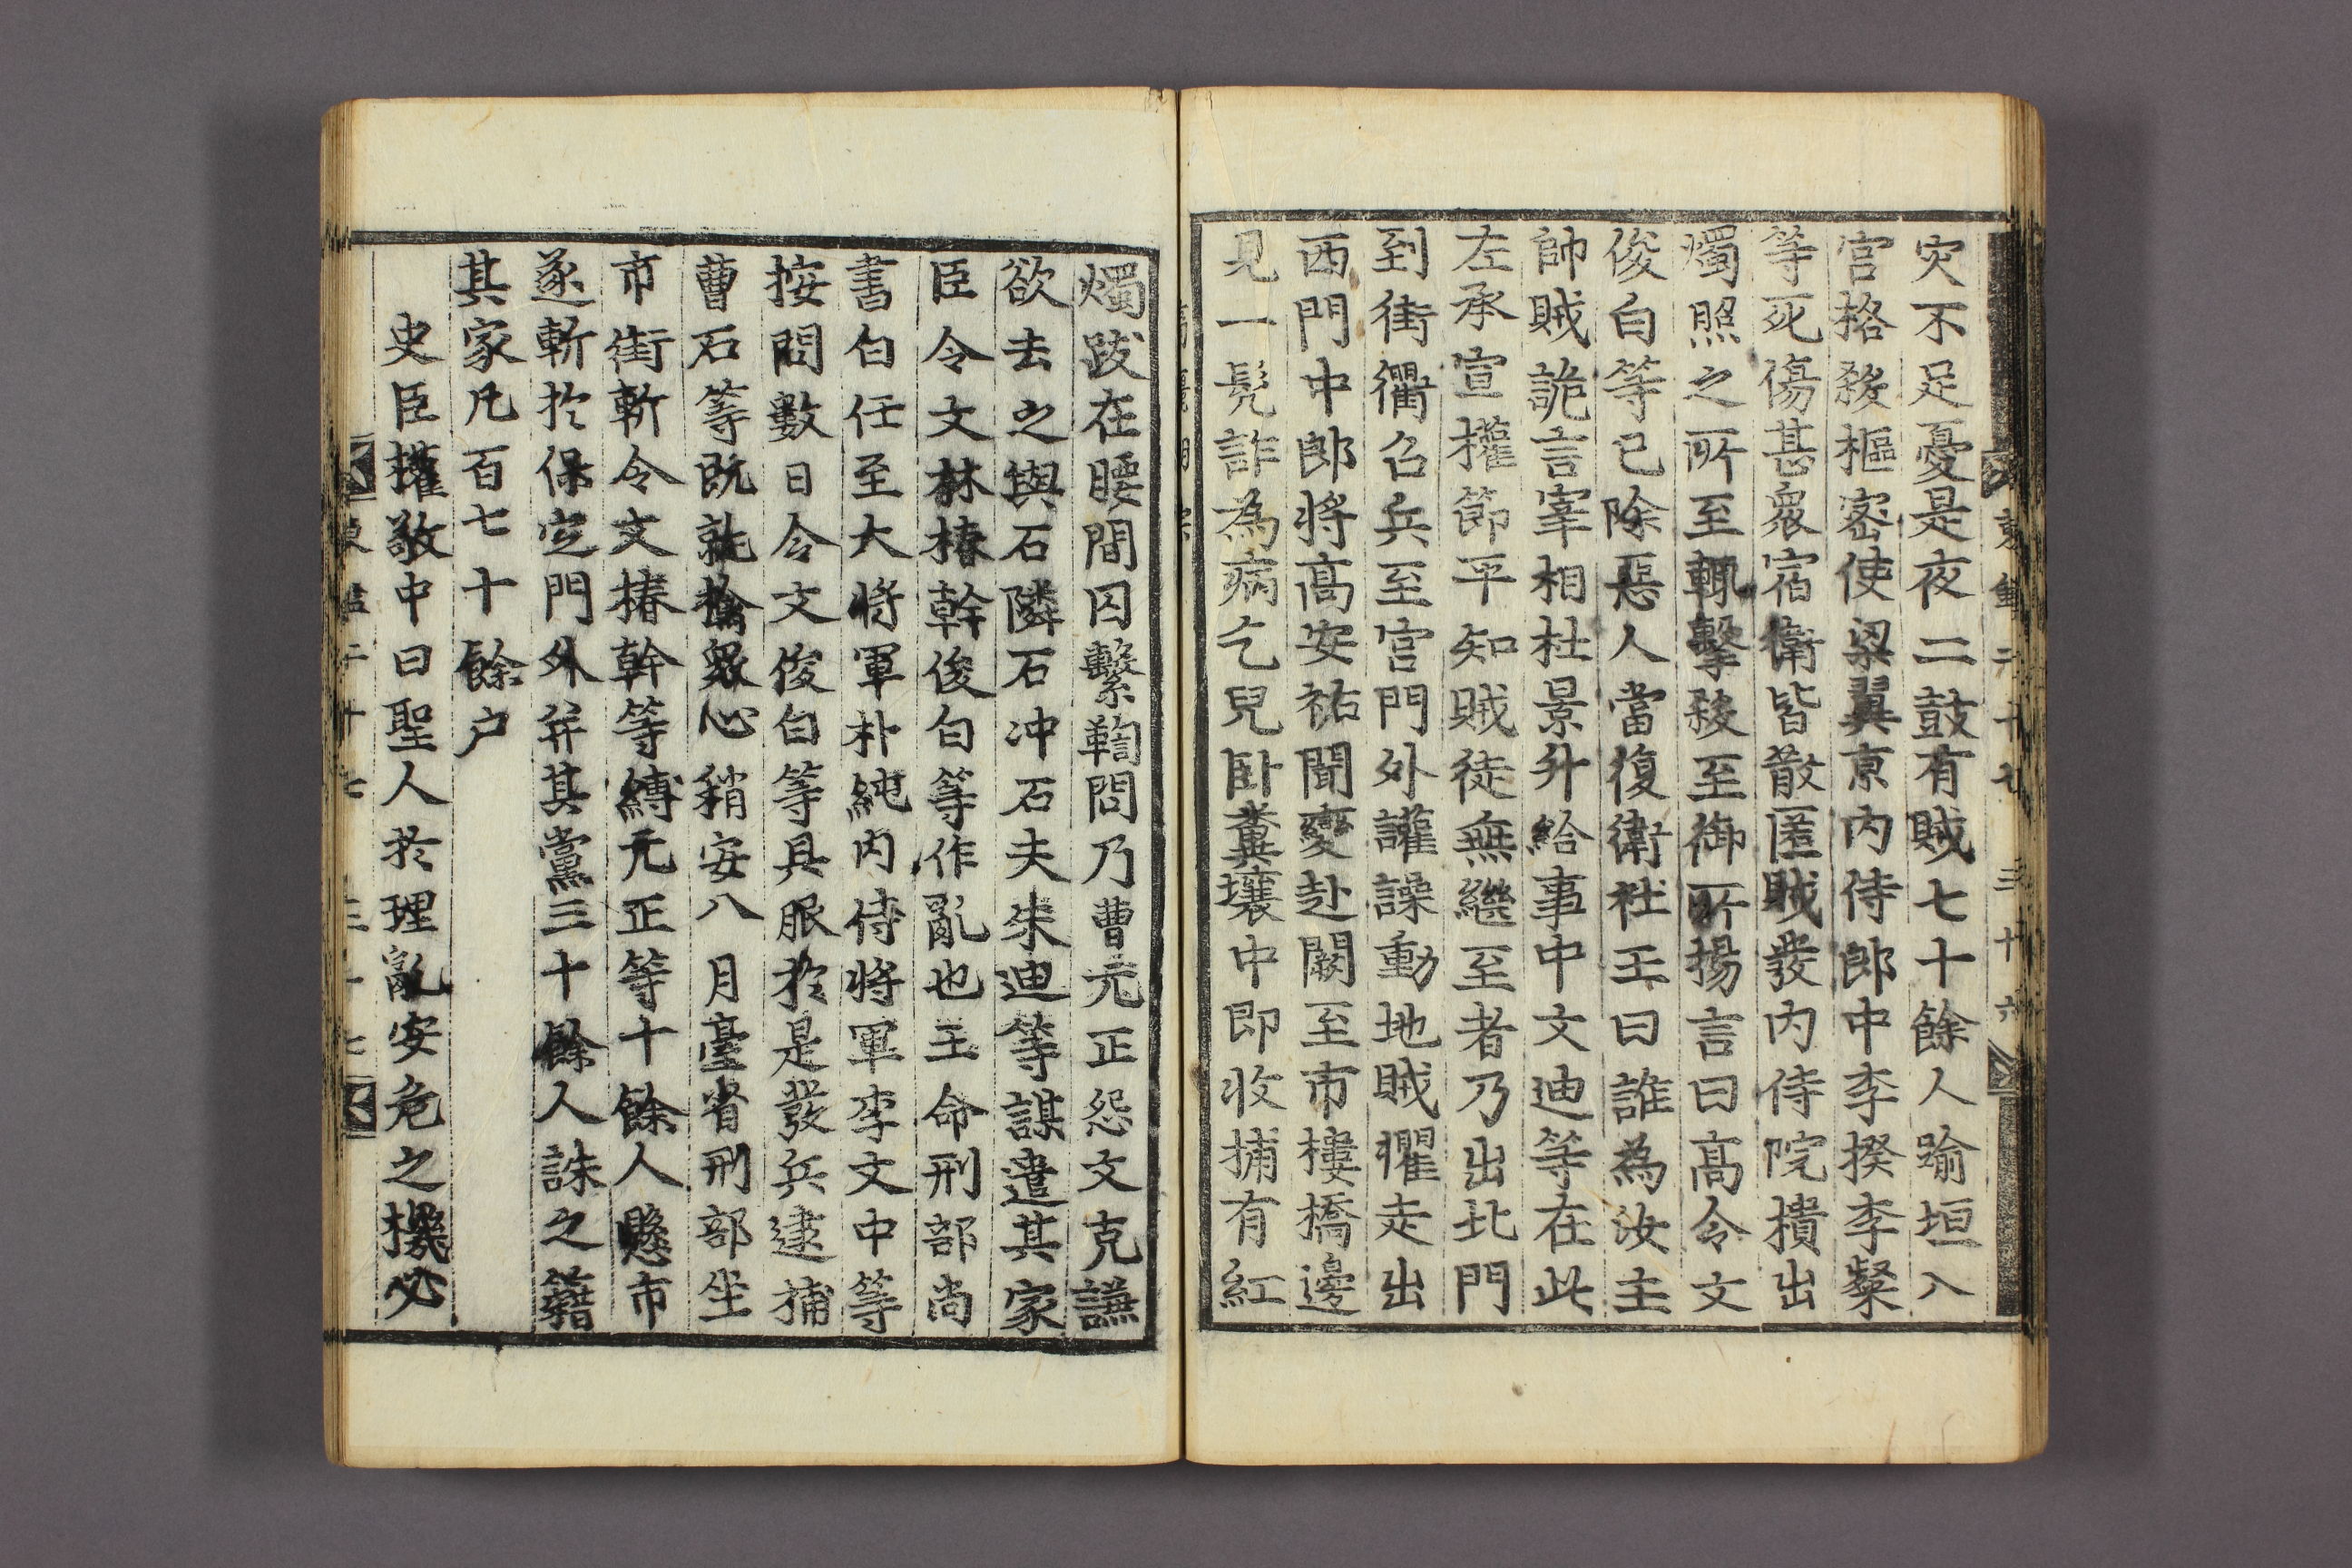 東鑑二十七 三十六
灾不足憂是夜二鼓有賊七十餘人踰垣入
宮格殺樞密使梁翼京內侍郎中李揆李粲
等死傷甚衆宿衛皆散匿賊發內侍院樻出
燭照之所至輒擊殺至御所揚言曰高令文
俊白等已除惡人當復衛社王曰誰為汝主
帥賊詭言宰相杜景升給事中文迪等在此
左承宣權節平知賊徒無繼至者乃出北門
到街衢召兵至宮門外讙譟動地賊懼走出
西門中郎將高安祐聞變赴闕至市樓橋邊
見一髡詐為病乞兒臥糞壤中即收捕有紅
燭跋在腰間囚繫鞫問乃曹元正怨文克謙
欲去之與石隣石冲石夫朱迪等謀遣其家
臣令文林椿幹俊白等作亂也王命刑部尚
書白任至大將軍朴純內侍將軍李文中等
按問數日令文俊白等具服於是發兵逮捕
曹石等旣就擒衆心稍安八月臺省刑部坐
市街斬令文椿幹等縛元正等十餘人懸市
遂斬於保定門外并其黨三十餘人誅之籍
其家凡百七十餘户
史臣權敬中曰聖人於理亂安危之機必
東鑑二十七 三十七